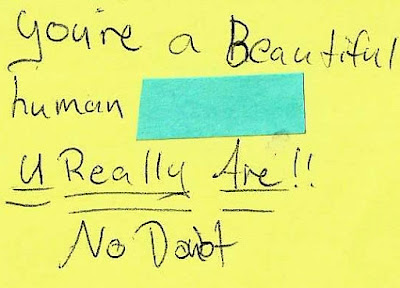 You're a Beautiful
human
U Really Are!!
No Doubt